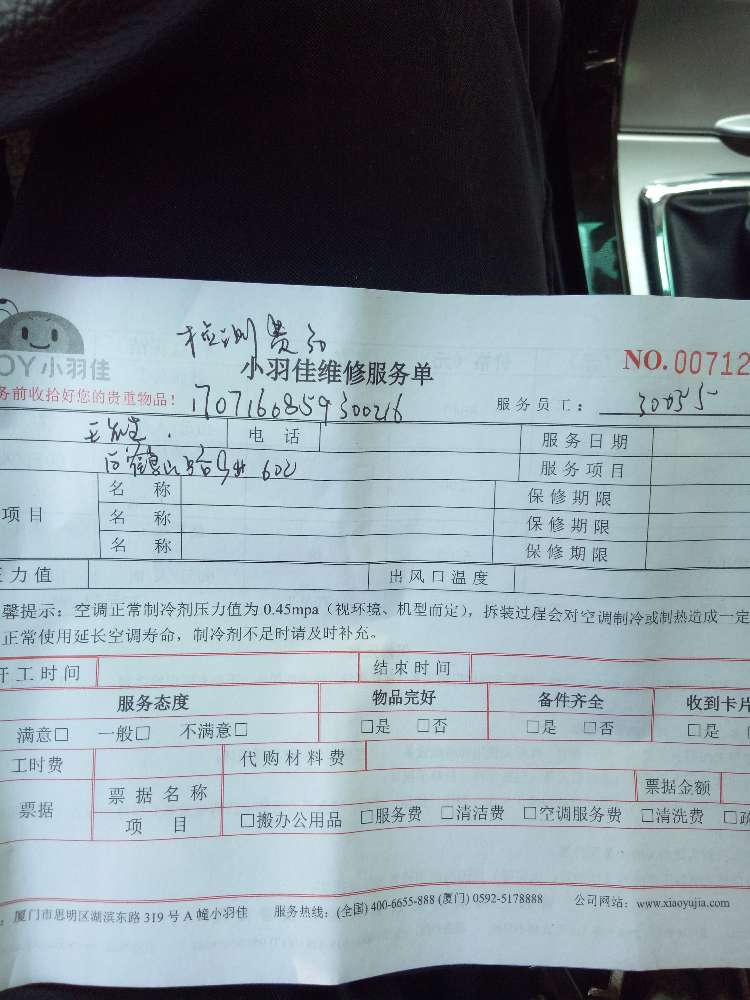 检测费30
OY小羽佳
小羽佳维修服务单
NO.00712
务前收拾好您的贵重物品！
170716085930026
服务员工：
电 话
服务日期
602
服务项目
名 称
保修期限
项目
名 称
保修期限
名 称
保修期限
压力值
出风口温度
馨提示：空调正常制冷剂压力值为 0.45mpa（视环境、机型而定），拆装过程会对空调制冷或制热造成一定
正常使用延长空调寿命，制冷剂不足时请及时补充。
开工时间
结束时间
服务态度
物品完好
备件齐全
收到卡片
满意□ 一般□ 不满意□
□是 □否
□是 □否
□是
工时费
代购材料费
票据
票据名称
票据金额
项 目
□搬办公用品 □服务费 □清洁费 □空调服务费 □清洗费 □疏
：厦门市思明区湖滨东路 319 号 A 幢小羽佳 服务热线：(全国) 400-6655-888 (厦门) 0592-5178888 公司网站：www.xiaoyujia.com